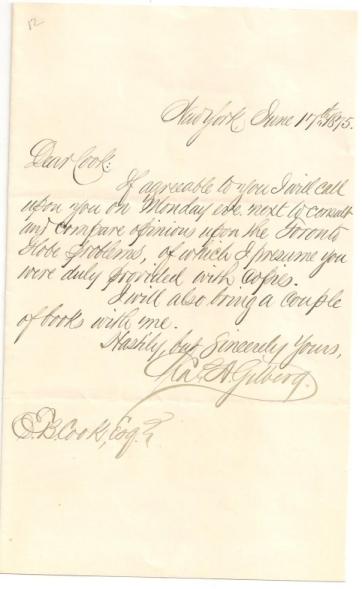 12
New York, June 17th 1875.
Dear Cook:
If agreeable to you I will call
upon you on Monday eve. next to consult
and compare opinions upon the Toronto
Globe Problems, of which I presume you
were duly provided with copies.
I will also bring a couple
of books with me.
Hastily, but Sincerely Yours,
Chas. A. Gilberg.
E. B. Cook, Esq.